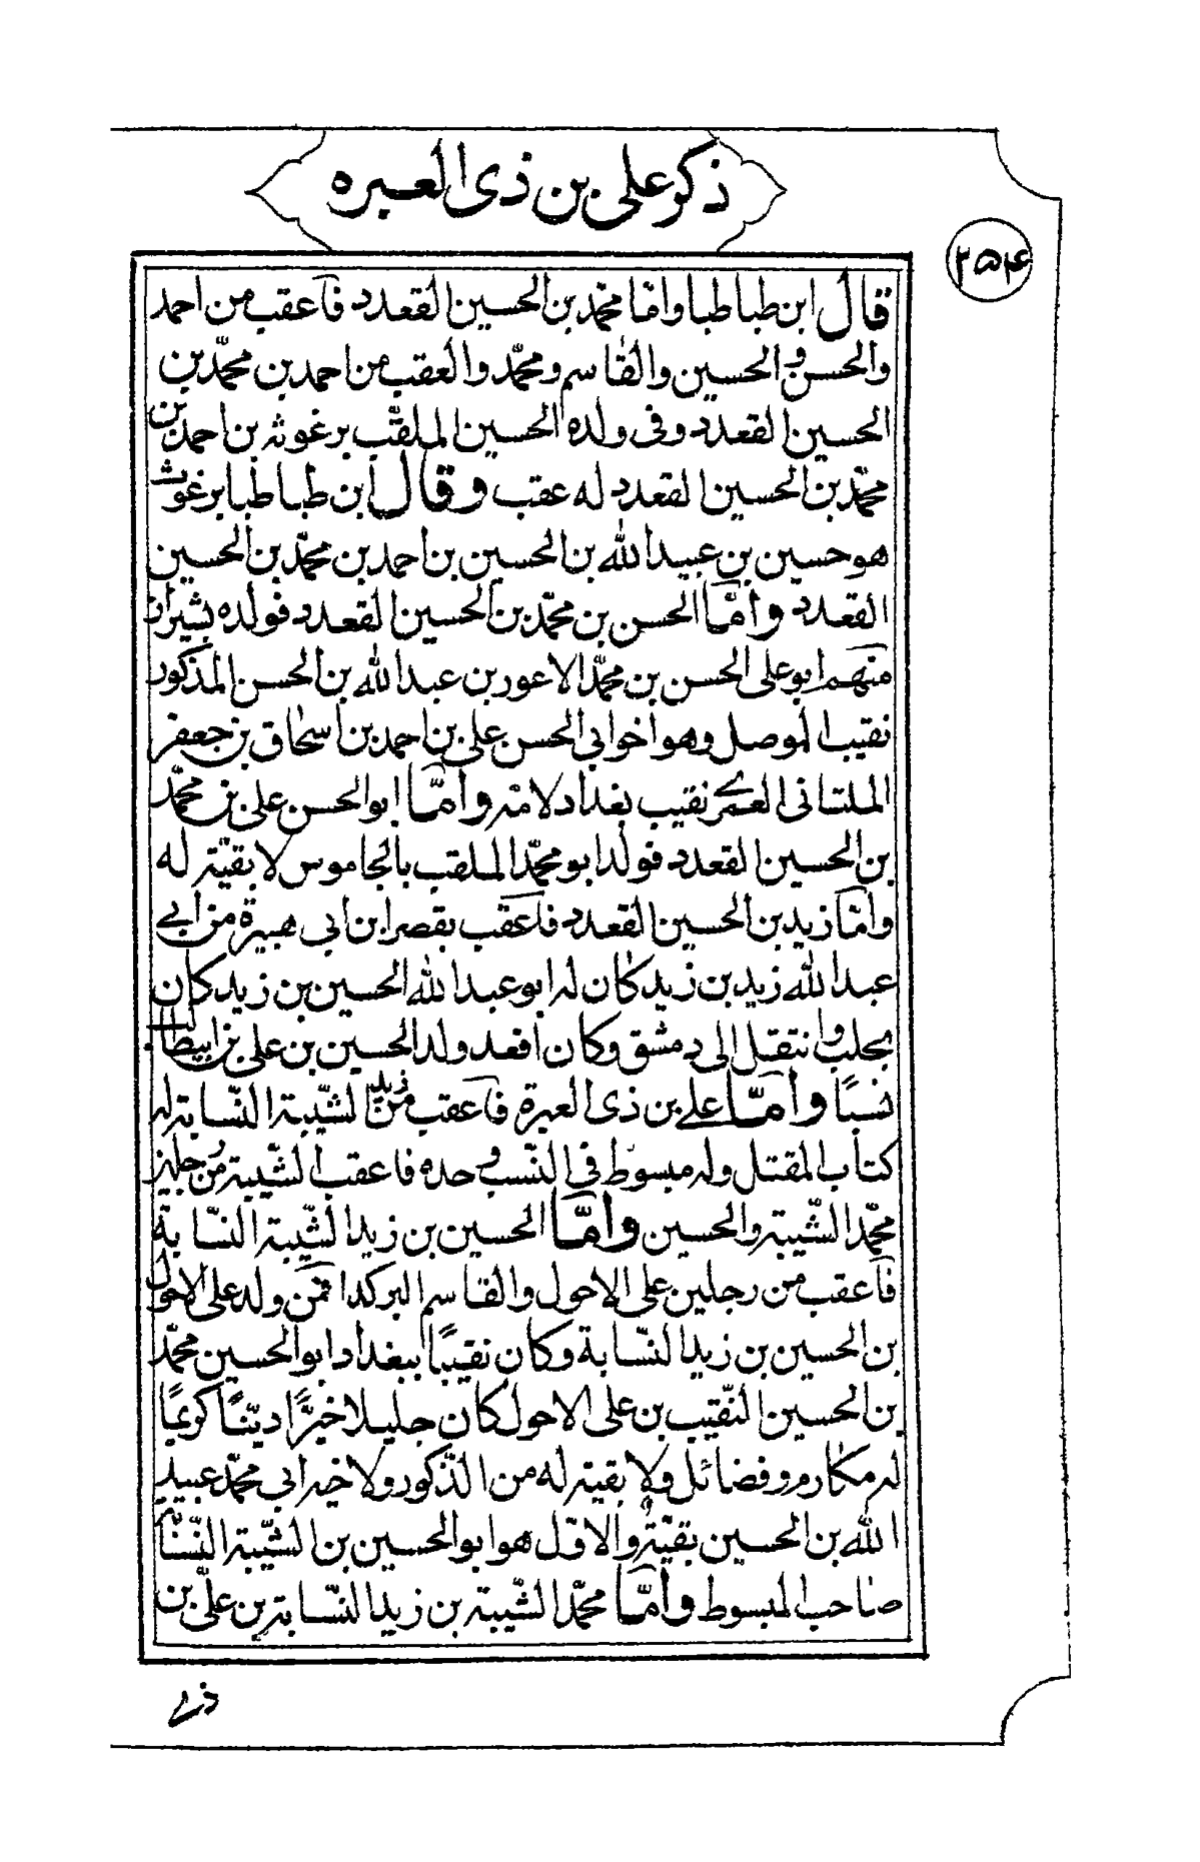 ذكر على بن ذى العبره
٢٥٤
قال ابن طباطبا وامّا محمّد بن الحسين القعدد فآعقب من احمد
والحسن و الحسين والقاسم ومحمّد والعقب من احمد بن محمّد بن
الحسين القعدد وفى ولده الحسين الملقّب برغوثه بن احمد بن
محمّد بن الحسين القعدد له عقب وقال ابن طباطبا برغوث
هو حسين بن عبيد الله بن الحسين بن احمد بن محمّد بن الحسين
القعدد وامّا الحسن بن محمّد بن الحسين القعدد فولده بشيراز
منهم ابو على الحسن بن محمّد الاعور بن عبد الله بن الحسن المذكور
نقيب الموصل وهو اخو ابى الحسن على بن احمد بن اسحاق بن جعفر
الملتانى العمرى نقيب بغداد لامّه وامّا ابو الحسن على بن محمّد
بن الحسين القعدد فولد ابو محمّد الملقب بالجاموس لا بقيّة له
وامّا زيد بن الحسين القعدد فاعقب بقصر ابن ابى هبيرة من ابى
عبد الله زيد بن زيد كان له ابو عبد الله الحسين بن زيد كان
بحلب وانتقل الى دمشق وكان اقعد ولد الحسين بن على بن ابيطالب
نسبًا وامّا على بن ذى العبرة فآعقب من زيد الشّبيه النّسابة له
كتاب المقتل وله مبسوط فى النّسب وحده فاعقب الشّبيه من رجلين
محمّد الشّبيه والحسين وامّا الحسين بن زيد الشّبيه النّسّابة
فآعقب من رجلين على الاحول والقاسم البركد فمن ولد على الاحول
بن الحسين بن زيد النّسّابة وكان نقيبًا ببغداد ابو الحسين محمّد
بن الحسين النّقيب بن على الاحول كان جليلا خيّرًا ديّنًا كريمًا
له مكارم وفضائل ولا بقيّة له من الذّكور ولاخيه ابى محمّد عبيد
الله بن الحسين بقيّة والاوّل هو ابو الحسين بن الشّبيه النّسّابة
صاحب المبسوط وامّا محمّد الشّبيه بن زيد النّسّابة بن علىّ بن
ذى